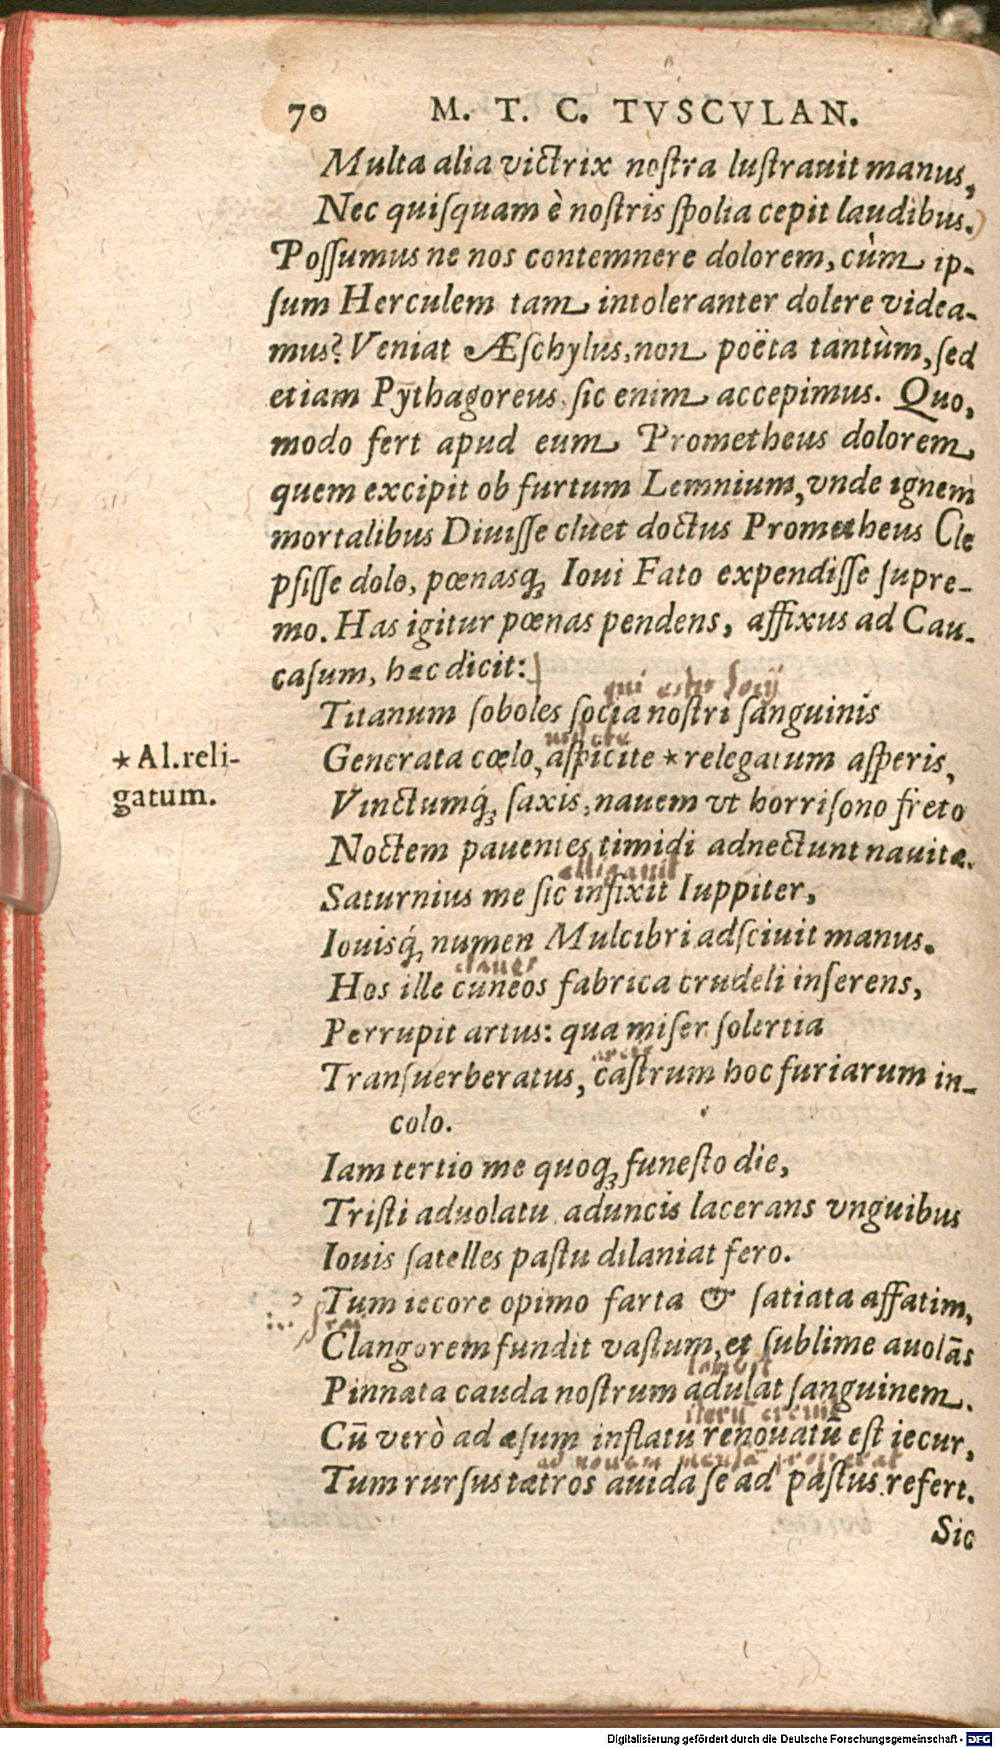 70 M. T. C. TVSCVLAN.
Multa alia victrix nostra lustrauit manus,
Nec quisquam è nostris spolia cepit laudibus.)
Possumus ne nos contemnere dolorem, cùm ip-
sum Herculem tam intoleranter dolere videa-
mus? Veniat Æschylus, non poëta tantùm, sed
etiam Pythagoreus, sic enim accepimus. Quo,
modo fert apud eum Prometheus dolorem,
quem excipit ob furtum Lemnium, vnde ignem
mortalibus Diuisse cluet doctus Prometheus Cle
psisse dolo, pœnasq; Ioui Fato expendisse supre-
mo. Has igitur pœnas pendens, affixus ad Cau-
casum, hæc dicit:
qui estis socij
Titanum soboles socia nostri sanguinis
Generata cœlo, aspicite *relegatum asperis,
* Al. reli-
gatum.
Vinctumq́; saxis, nauem vt horrisono freto
Noctem pauentes timidi adnectunt nauitæ.
alligauit
Saturnius me sic infixit Iuppiter,
Iouisq́; numen Mulcibri adsciuit manus.
clauos
Hos ille cuneos fabrica crudeli inserens,
Perrupit artus: qua miser solertia
Transuerberatus, castrum hoc furiarum in-
colo.
Iam tertio me quoq; funesto die,
Tristi aduolatu aduncis lacerans vnguibus
Iouis satelles pastu dilaniat fero.
Tum iecore opimo farta & satiata affatim,
Clangorem fundit vastum, et sublime auolãs
lambit
Pinnata cauda nostrum adulat sanguinem.
Cũ verò adæsum inflatu renouatũ est iecur,
ad nouam mensã properat
Tum rursus tætros auida se ad pastus refert.
Sic
Digitalisierung gefördert durch die Deutsche Forschungsgemeinschaft - DFG